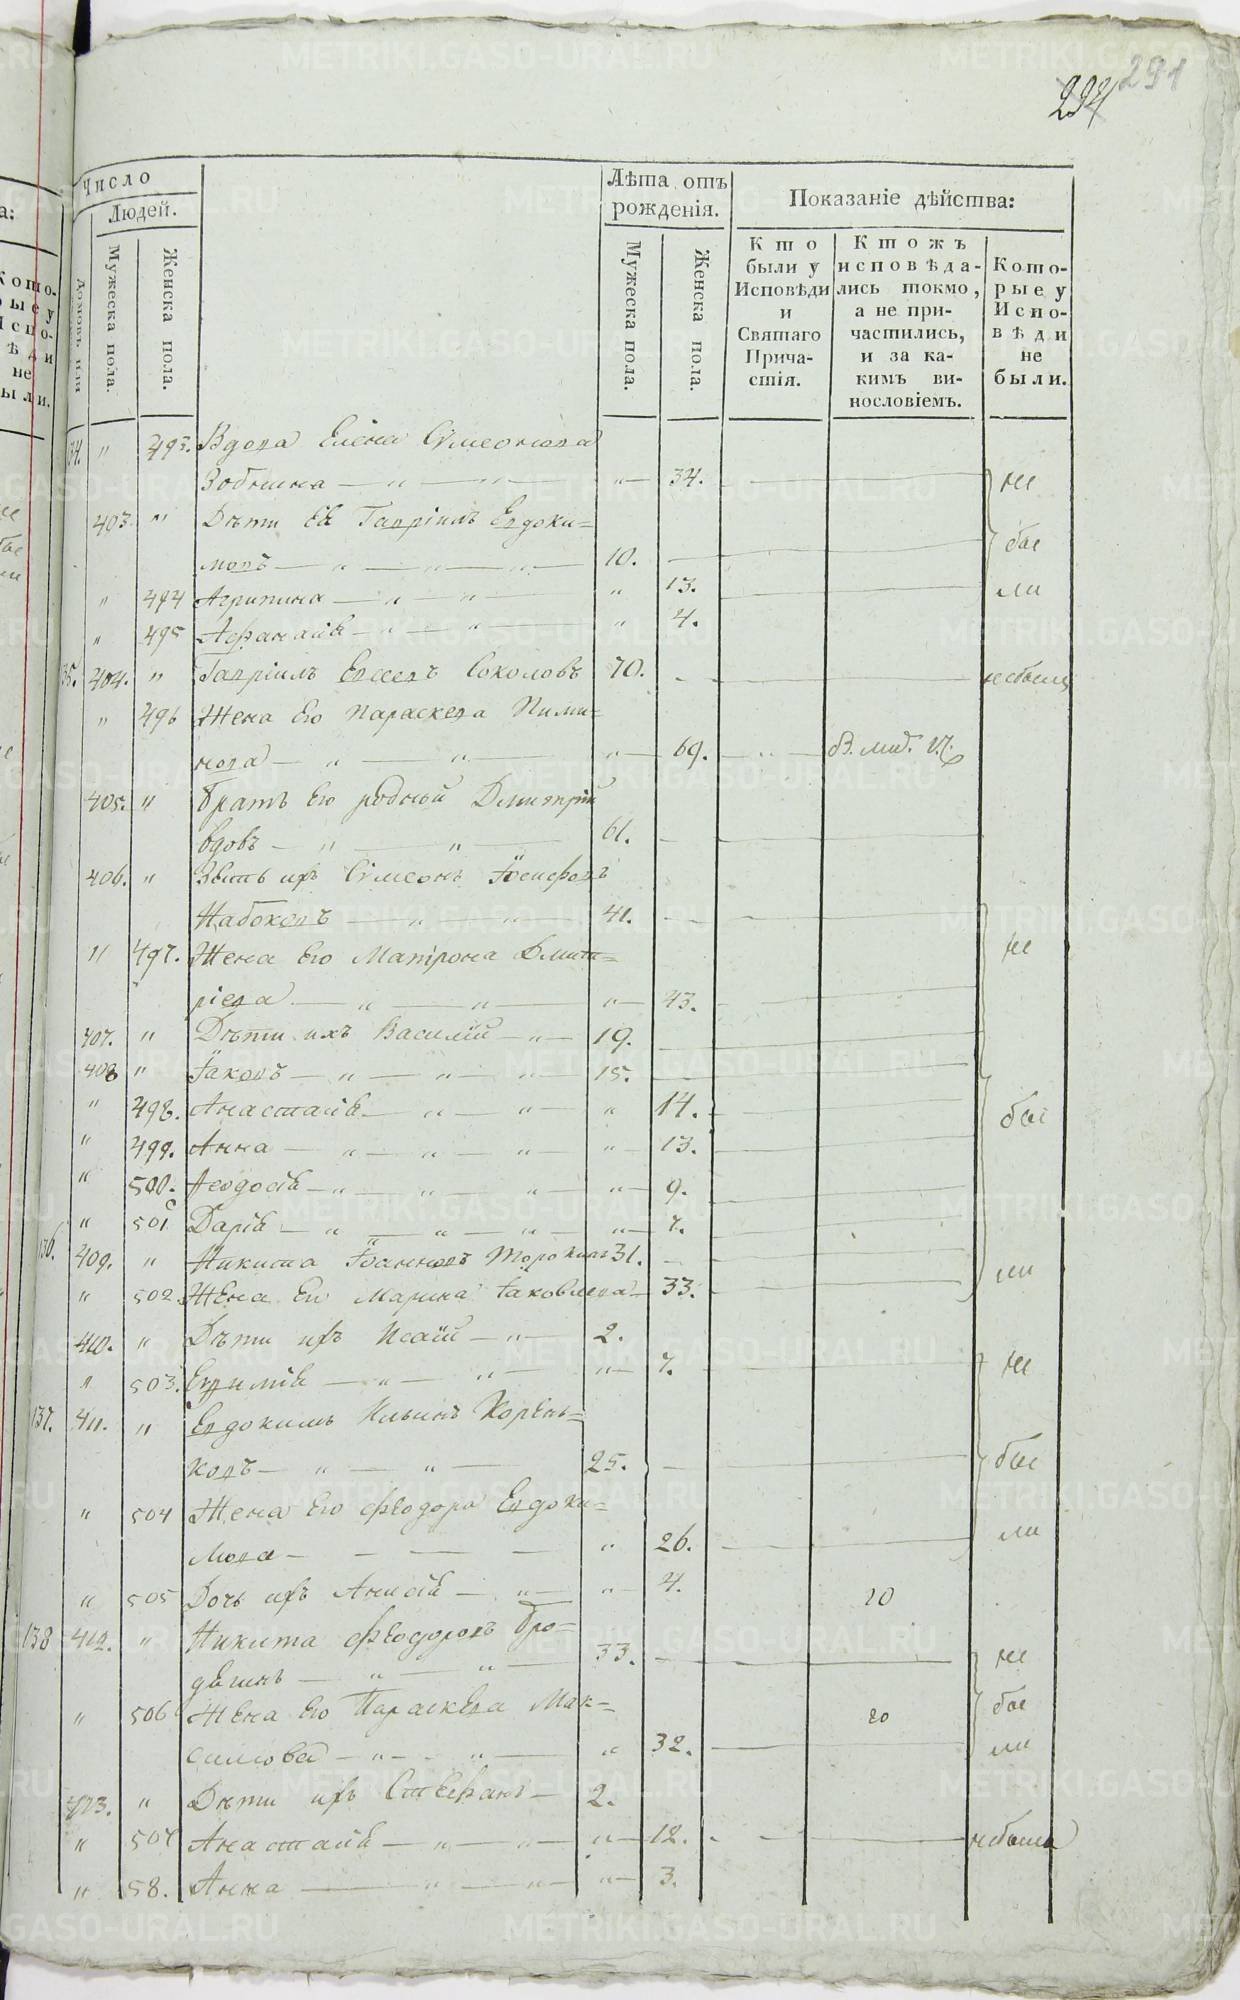 291
Число
Людей.
Лѣта отъ рожденія.
Показаніе дѣйства:
Мужеска пола.
Женска пола.
Мужеска пола.
Женска пола.
Кто были у Исповѣди и Святаго Причастія.
Ктожъ исповѣдались токмо, а не причастились, и за какимъ винословіемъ.
Которые у Исповѣди не были.
34. " 493. Вдова Елена Симеонова
Зобнина — " — " — " — 34. — не
403. " Дѣти Ея Гавріилъ Евдоки=
мовъ — " — " — " — 10. — бы
" 494 Агрипина — " — " — " 13. — ли
" 495 Афанасія — " — " — " 4.
35. 404. " Гавріилъ Евсеевъ Соколовъ 70. — небылъ
" 496 Жена Его Параскева Пими=
нова — " — " — " — 69. — " —
405. " братъ Его родный Димитрій
вдовъ — " — " — 61. —
406. " Зять ихъ Симеонъ Іосифовъ
Набоковъ — " — " — 41. —
" 497. Жена Его Матрона Дмит=
ріева — " — " — " — 43. — не
407. " Дѣти ихъ Василій — " — 19. —
408 " Іаковъ — " — " — " 15. —
" 498. Анастасія — " — " — " 14. — бы
" 499. Анна — " — " — " — " — 13. —
" 500. Феодосія — " — " — " — " — 9. —
" 501 Дарія — " — " — " — " — 7. —
136. 409. " Никита Іоанновъ 31. —
" 502. Жена Его Марина Іаковлева — 33. — ли
410. " Дѣти ихъ Исаій — " — 2.
" 503. Евфимія — " — " — " — 7. — не
137. 411. " Евдокимъ Ильинъ Корень=
ковъ — " — " — 25. — бы
" 504 Жена Его Феодора Евдоки=
мова — — — — " 26. — ли
" 505 Дочь ихъ Анисія — " — " — 4.
138 412. " Никита Феодоровъ Бро=
дягинъ — " — " — 33. — не
" 506 Жена Его Параскева Мак=
симова — " — " — " 32. — были
413. " Дѣти ихъ Стефанъ — 2.
" 507 Анастасія — " — " — " — 12. — небыла
" 58. Анна — " — " — " — 3.